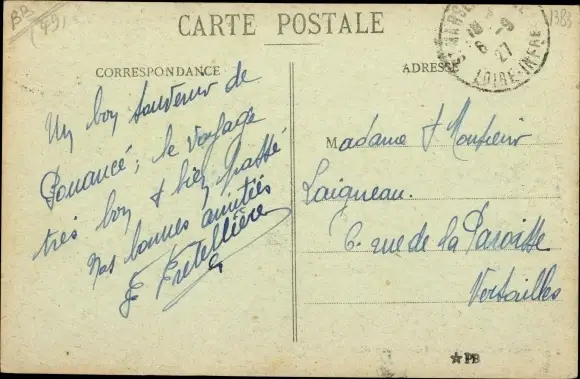 BB
(49)
1383
CARTE POSTALE
CORRESPONDANCE
ADRESSE
18 9
6 - 9
27
LOIRE-INFRE
Un bon souvenir de
Pouancé, le voyage
très bon & bien passé
Nos bonnes amitiés
Madame & Monsieur
Laigneau.
6. rue de la Paroisse
Versailles
PB